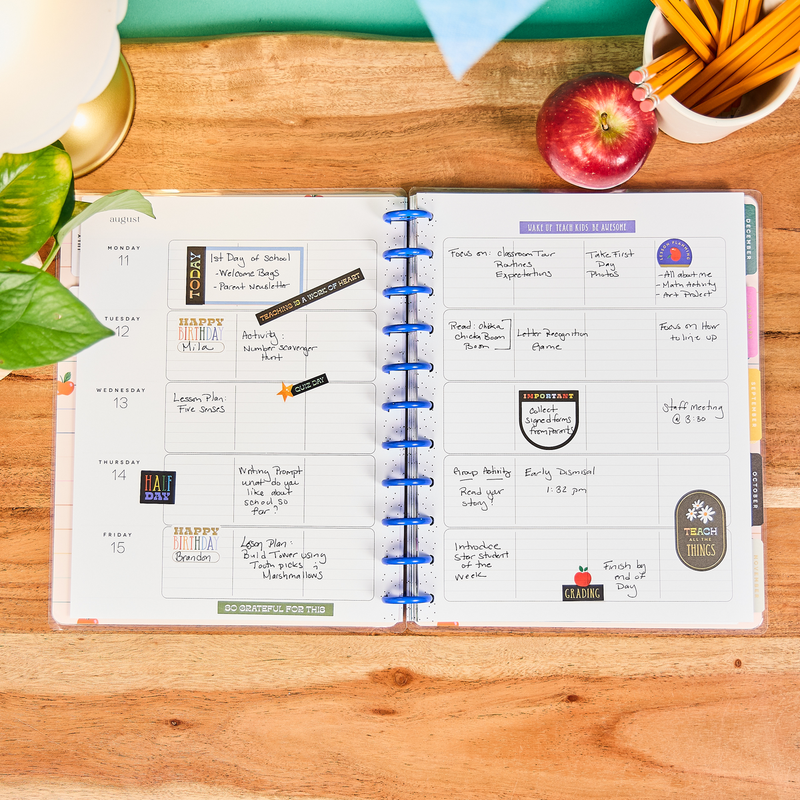 august
WAKE UP. TEACH KIDS. BE AWESOME
MONDAY
11
TODAY
1st Day of School
- Welcome Bags
- Parent Newsletter
TEACHING IS A WORK OF HEART
Focus on: Classroom Tour
Routines
Expectations
Take First
Day
Photos
LESSON PLANNING
- All about me
- Math Activity
- Art Project
TUESDAY
12
HAPPY
BIRTHDAY
Mila
Activity:
Number scavenger
Hunt
Read: Chicka
Chicka Boom
Boom
Letter Recognition
Game
Focus on How
to line up
WEDNESDAY
13
Lesson Plan:
Five senses
QUIZ DAY
IMPORTANT
Collect
signed forms
from parents
Staff Meeting
@ 3:30
THURSDAY
14
HALF
DAY
Writing Prompt
what do you
like about
school so
far?
Group Activity
Read your
story?
Early Dismissal
1:32 pm
TEACH
ALL THE
THINGS
FRIDAY
15
HAPPY
BIRTHDAY
Brandon
Lesson Plan:
Build Tower using
Tooth picks &
Marshmallows
Introduce
Star student
of the
week
GRADING
Finish by
end of
Day
SO GRATEFUL FOR THIS
DECEMBER
SEPTEMBER
OCTOBER